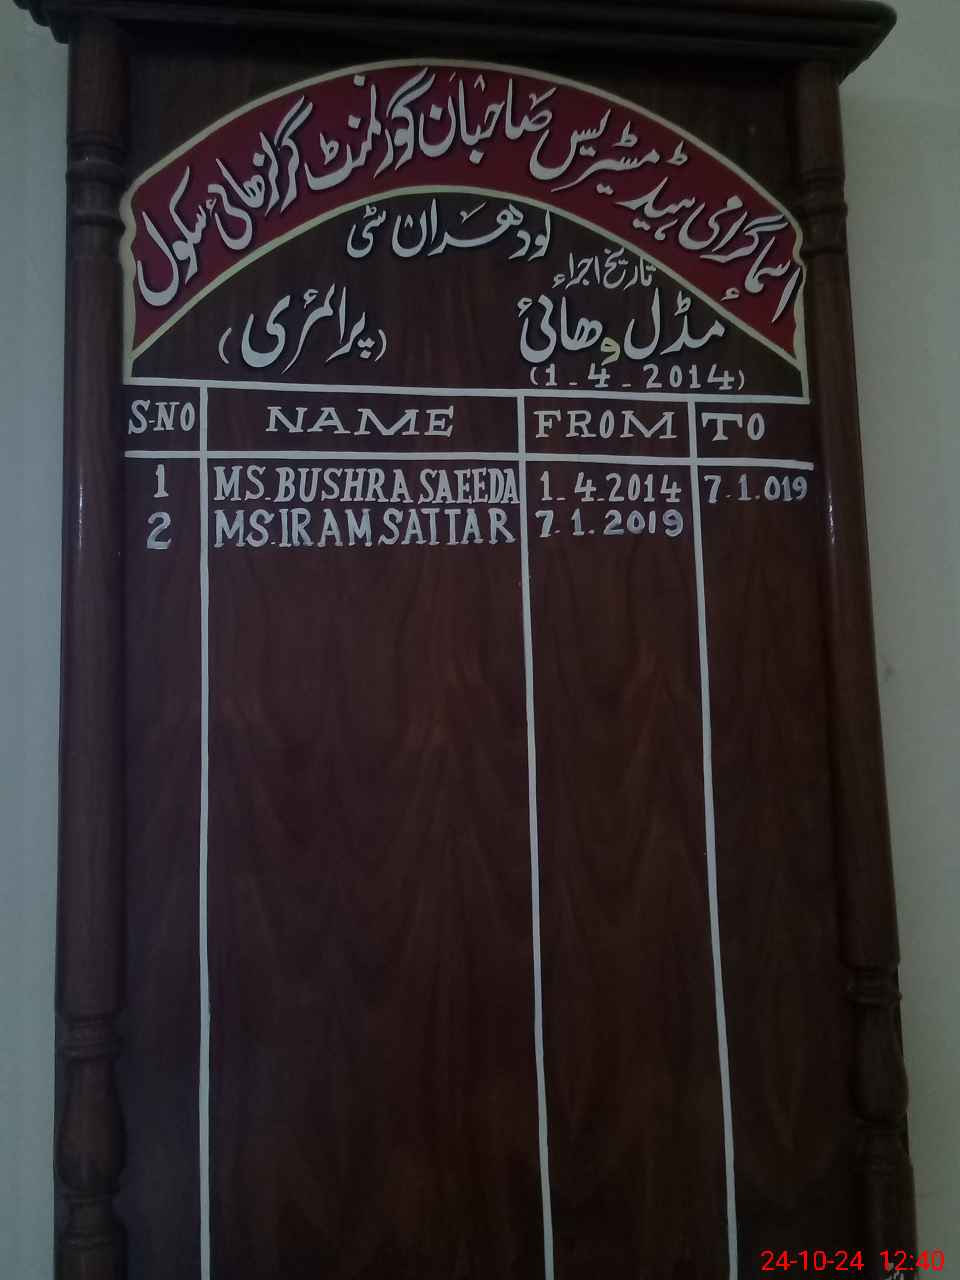 اسماگرامی ہیڈ مسٹریس صاحبان گورنمنٹ گرلز ھائی سکول
لودھراں سٹی
تاریخ اجراء
مڈل و ھائی (پرائمری)
(1-4-2014)
S-NO NAME FROM TO
1 MS.BUSHRA SAEEDA 1.4.2014 7.1.019
2 MS.IRAM SATTAR 7.1.2019
24-10-24 12:40